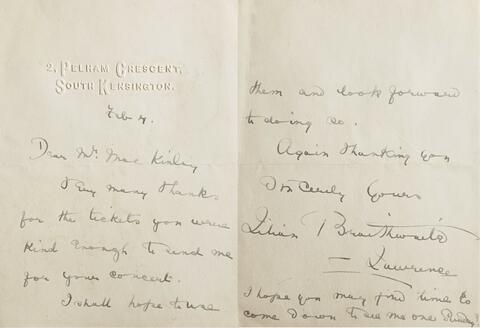 2, PELHAM CRESCENT,
SOUTH KENSINGTON.
Feb 4.
Dear Mr. Mac Kinley
many thanks
for the tickets you were
kind enough to send me
for your concert.
I shall hope to use
them and look forward
to doing so.
Again thanking you
Sincerely Yours
Lilian Braithwaite
= Lawrence
I hope you may find time to
come down to see me one Sunday!